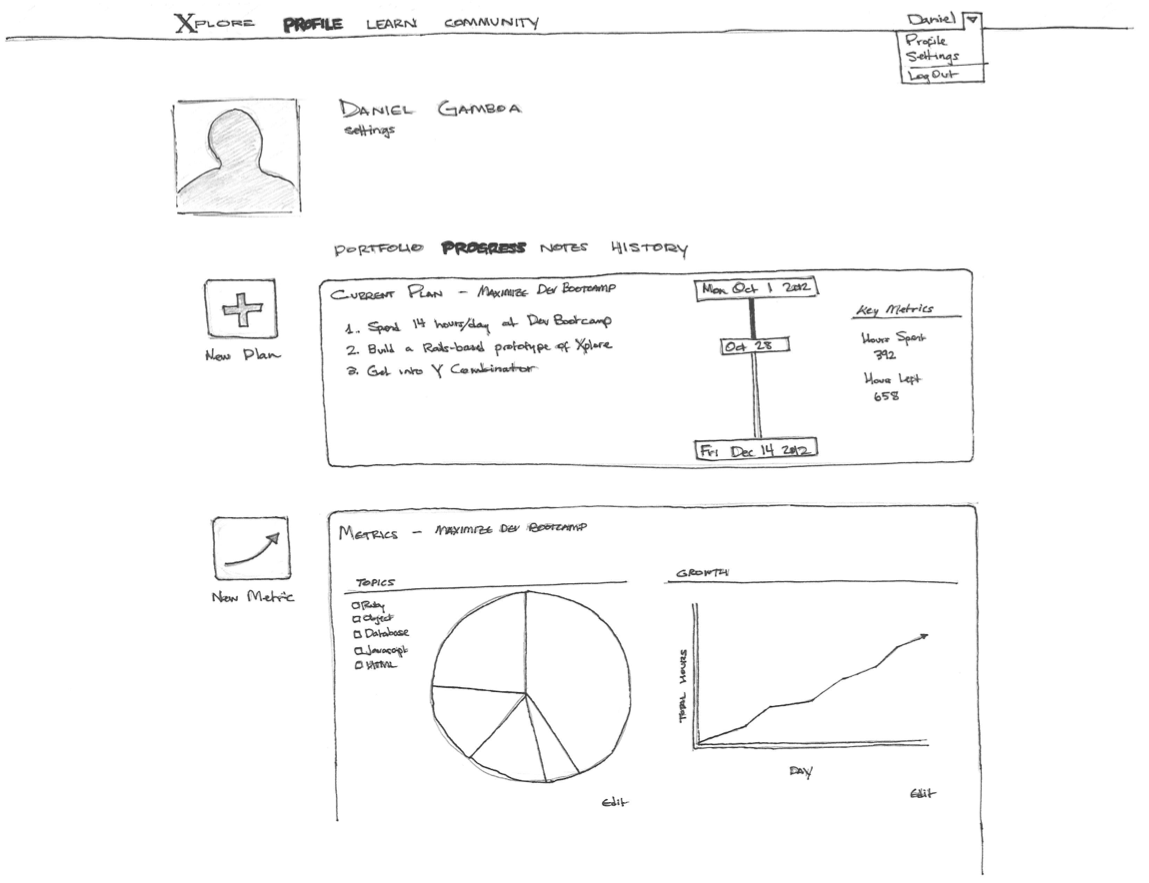 XPLORE PROFILE LEARN COMMUNITY
Daniel
Profile
Settings
Log Out
DANIEL GAMBOA
settings
PORTFOLIO PROGRESS NOTES HISTORY
New Plan
CURRENT PLAN - MAXIMIZE DEV BOOTCAMP
1. Spend 14 hours/day at Dev Bootcamp
2. Build a Rails-based prototype of Xplore
3. Get into Y Combinator
Mon Oct 1 2012
Oct 28
Fri Dec 14 2012
Key Metrics
Hours Spent
392
Hours Left
658
New Metric
METRICS - MAXIMIZE DEV BOOTCAMP
TOPICS
Ruby
Object
Database
Javascript
HTML
Edit
GROWTH
TOTAL HOURS
DAY
Edit